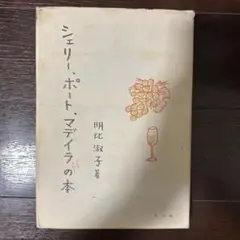 シェリー、ポート、マデイラの本
明比淑子著